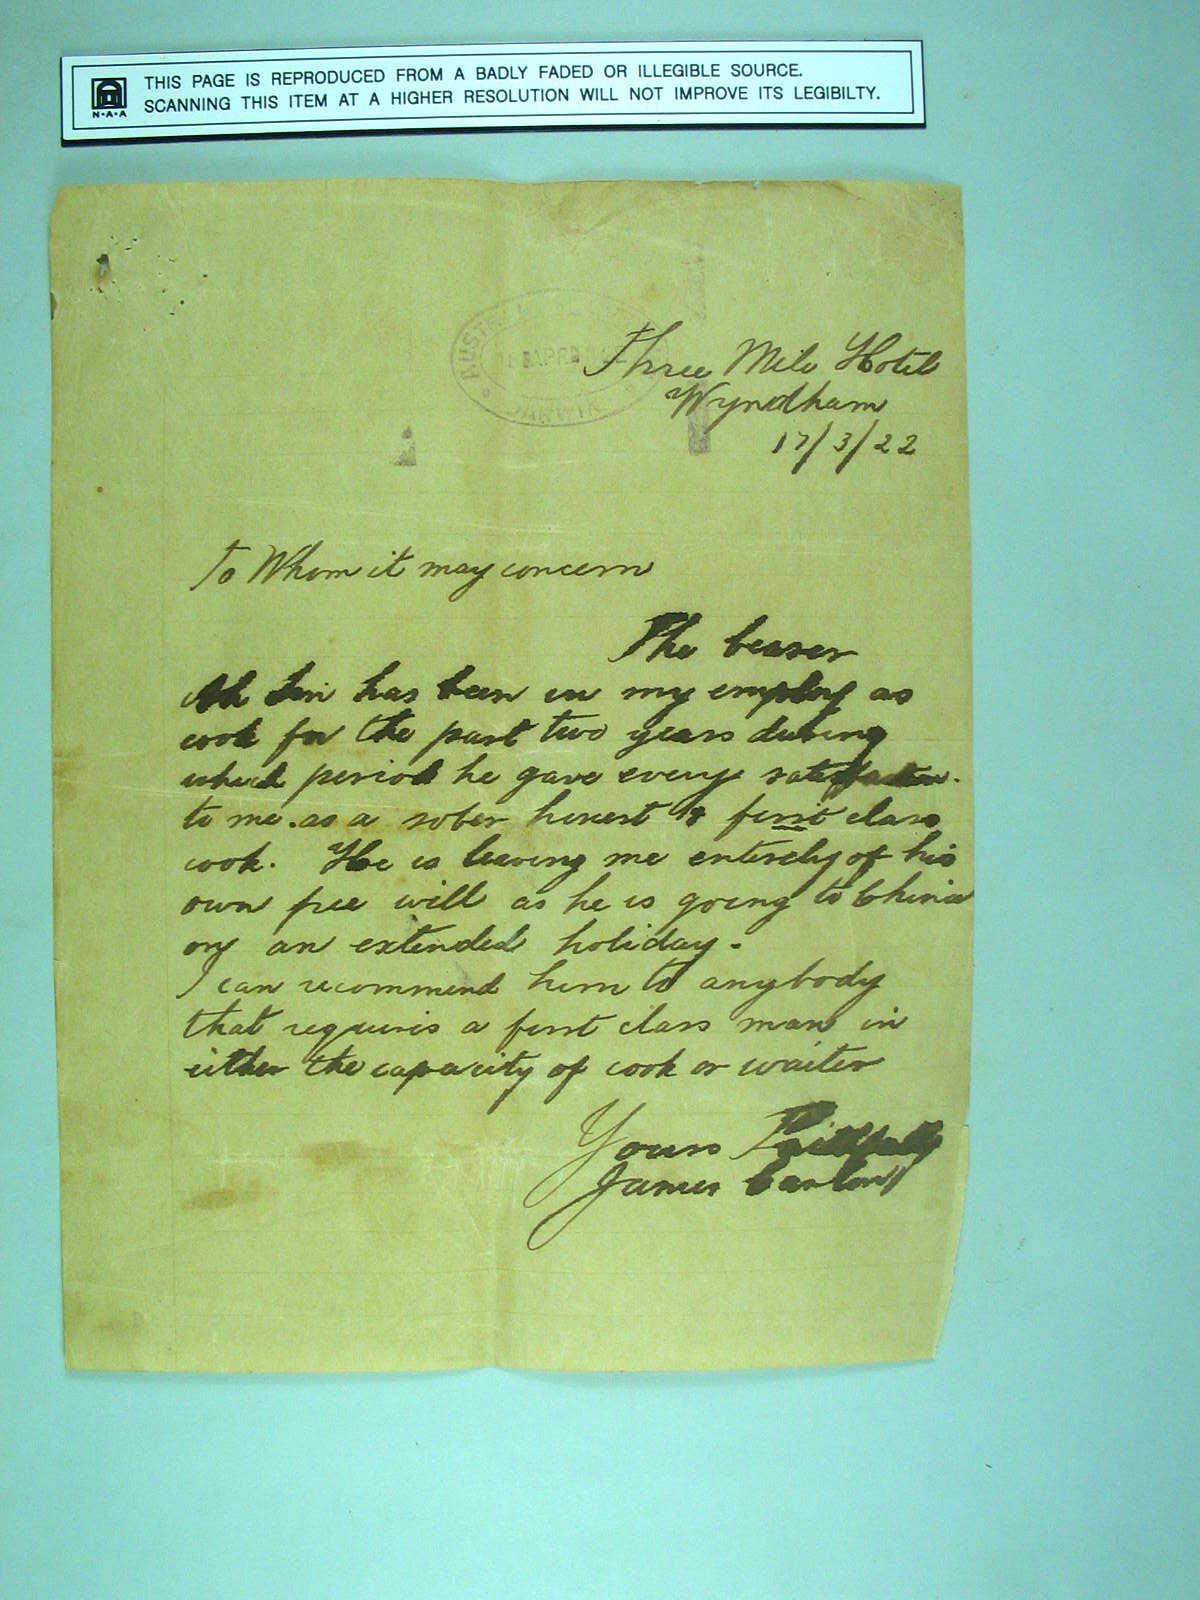 THIS PAGE IS REPRODUCED FROM A BADLY FADED OR ILLEGIBLE SOURCE.
SCANNING THIS ITEM AT A HIGHER RESOLUTION WILL NOT IMPROVE ITS LEGIBILTY.
N·A·A
Three Mile Hotel
Wyndham
17/3/22
To Whom it may concern
The bearer
Ah has been in my employ as
cook for the past two years during
which period he gave every satisfaction.
to me. as a sober honest & first class
cook. He is leaving me entirely of his
own free will as he is going to China
on an extended holiday.
I can recommend him to anybody
that requires a first class man in
either the capacity of cook or waiter
Yours Faithfully
James